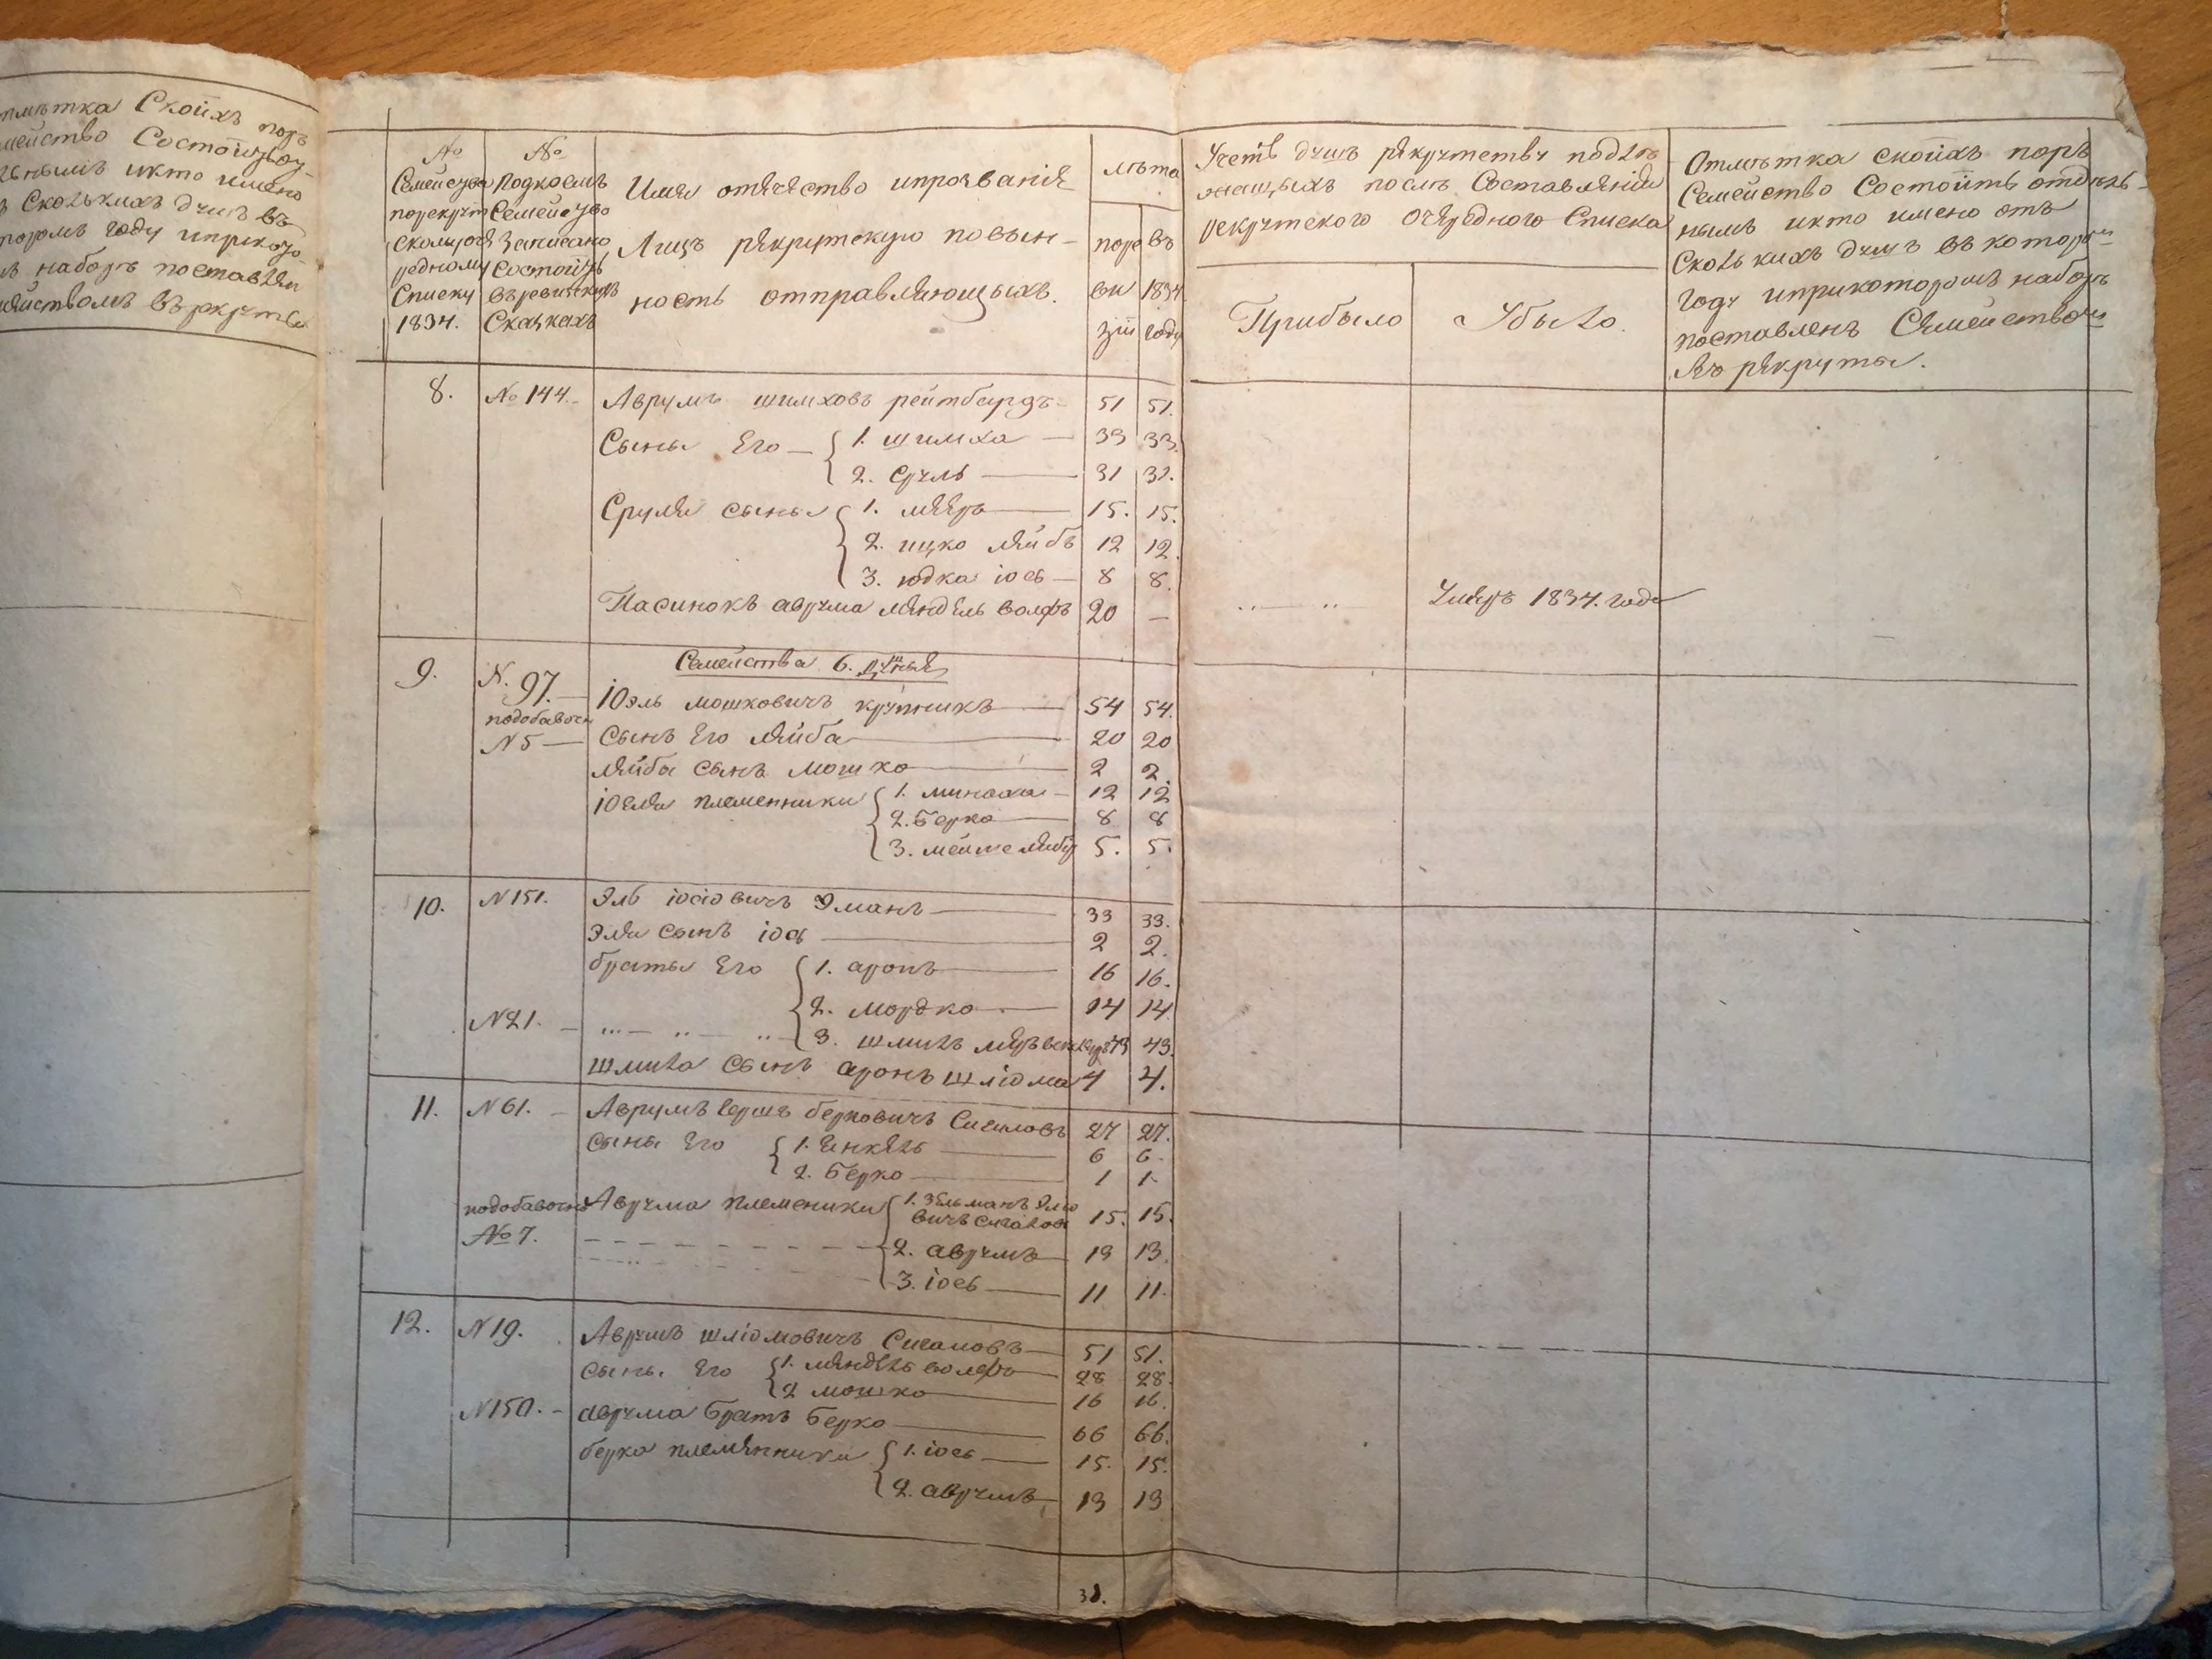 Скоихъ поръ
икто имено
Скольких душъ въ
наборъ поставлен
№
Семейства
порекрут
сколноо
редному
Списку
1834.
№
Подкоемъ
Семейство
Записано
Состоитъ
въревизкихъ
Сказкахъ
Имя отечество ипрозваніе
Лицъ рекрутскую повин-
ность отправляющыхъ.
лѣта
поре
ви
зіи
въ
1834
году
Учетъ душъ рекрутству подле-
жащыхъ послѣ Составленія
рекрутского очередного Списка
Прибыло
Убыло.
Отмѣтка скоихъ поръ
Семейство Состоитъ отдѣль-
нымъ икто имено отъ
Сколькихъ душъ въ которомъ
году иприкоторомъ наборѣ
поставленъ Семействомъ
въ рекруты.
8. № 144. Аврумъ шимховъ рейтбардъ 51 51.
Сыны Его { 1. шимха 33 33.
2. Сруль 31 31.
Сруля сыны { 1. мееръ 15. 15.
2. ицко лейбъ 12 12.
3. юдка іось 8 8.
Пасинокъ аврума мендель волфъ 20 — Умеръ 1834. года
Семейства 6. душныя
9. N. 97. Юэль мошковичъ крупникъ 54 54.
подобавочн
N 5 Сынъ Его лейба 20 20
лейбы сынъ мошко 2 2.
іоеля племенники { 1. минаша 12 12
2. Берко 8 8
3. 5. 5.
10. N 151. Эль іосіовичъ Эманъ 33 33.
Эля сынъ іось 2 2.
братья Его { 1. аронъ 16 16.
2. мордко 14 14
N 21. 3. шмиль 43 43.
шмиля сынъ аронъ шліома 4 4.
11. N 61. Аврумъ Герш берковичъ Сигаловъ 27 27.
сыны Его { 1. Енкель 6 6.
2. Берко 1 1.
подобавочн Аврума племеники { 1. Зельманъ Эліо
вичъ сигалов 15. 15.
№ 7. 2. аврумъ 13 13.
3. іось 11 11.
12. N 19. Аврумъ шліомовичъ Сигаловъ 51 51.
сыны Его { 1. мендель волфъ 28 28.
2 мошко 16 16.
N 150. аврума братъ Берко 66 66.
берка племянники { 1. іось 15. 15.
2. аврумъ 13 13
31.